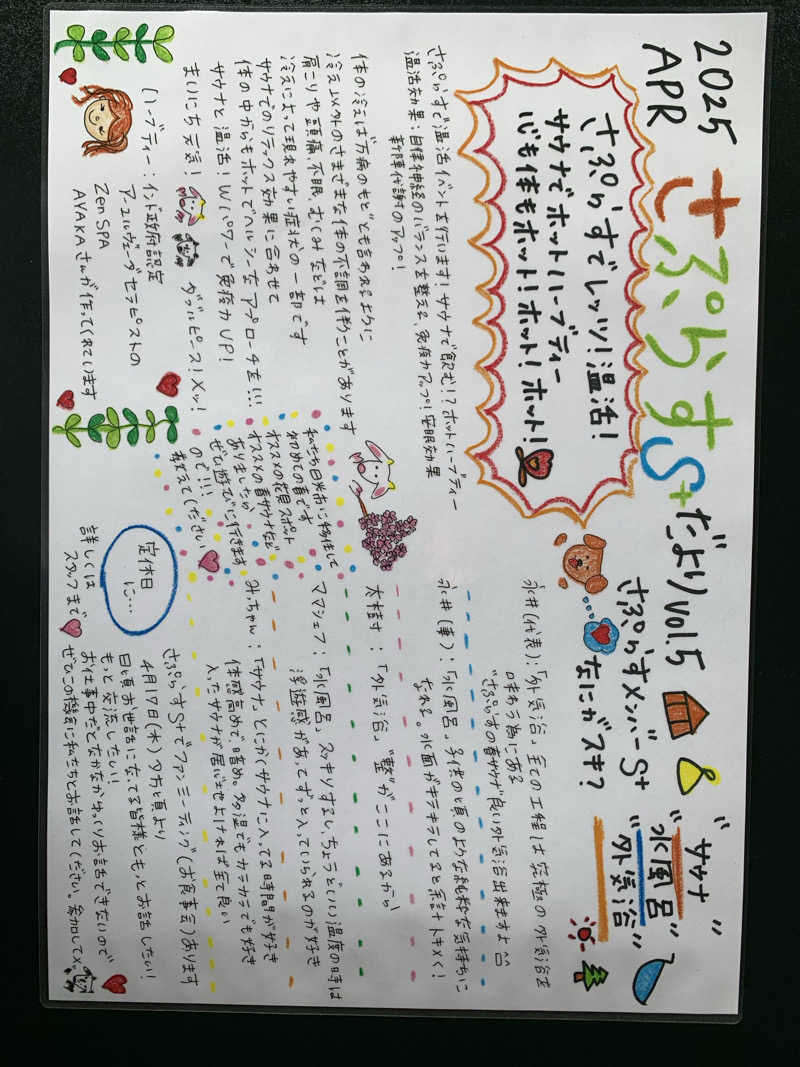 2025
APR
さぷらすS+だよりvol.5
さぷらすでレッツ!温活!
サウナでホットハーブティー
心も体もホット!ホット!ホット!
さぷらすで温活イベントを行います!サウナで飲む!?ホットハーブティー
温活効果:自律神経のバランスを整える、免疫力アップ!安眠効果
新陳代謝のアップ!
体の冷えは“万病のもと”とも言われるように
冷え以外のさまざまな体の不調を伴うことがあります
肩こりや頭痛、不眠、むくみなどは
冷えによって現れやすい症状の一部です
サウナでのリラックス効果に合わせて
体の中からもホットでヘルシーなアプローチを!!!
サウナと温活!Wパワーで免疫力UP!
まいにち元気! ダブルピース!メッ!
(ハーブティー:インド政府認定
アーユルヴェーダセラピストの
Zen SPA
AYAKAさんが作ってくれています
さぷらすメンバーS+
なにがスキ?
“サウナ”
“水風呂”
“外気浴”
永井(代表):「外気浴」全ての工程は究極の外気浴を
味わう為にある
“さぷらすの春サウナが良い外気浴出来ますよ
永井(妻):「水風呂」子供の頃のような純粋な気持ちに
なれる。水面がキラキラしてると余計トキメく!
太植村:「外気浴」“整”がここにあるから
ママシェフ:「水風呂」スッキリするし、ちょうど(いい)温度の時は
浮遊感があってずっと入っていられるのが好き
みっちゃん:「サウナ」とにかくサウナに入ってる時間が好き
体感高めで暗め。多湿でもカラカラでも好き
入ったサウナが居心地よければ全て良い
私たち白米市に移住して
初めての春です
オススメの花見スポット
オススメの春サウナなど
ありましたら
ぜひ遊びに行きます
ので!!!
教えてください
定休日
に…
詳しくは
スタッフまで
さぷらすS+でファンミーティング(お食事会)あります
4月17日(木)夕方頃より
日頃お世話になってる皆様ともっとお話したい!
もっと交流したい!
お仕事中だとなかなかゆっくりお話できないので
ぜひこの機会に私たちとお話してください。参加してメ〜